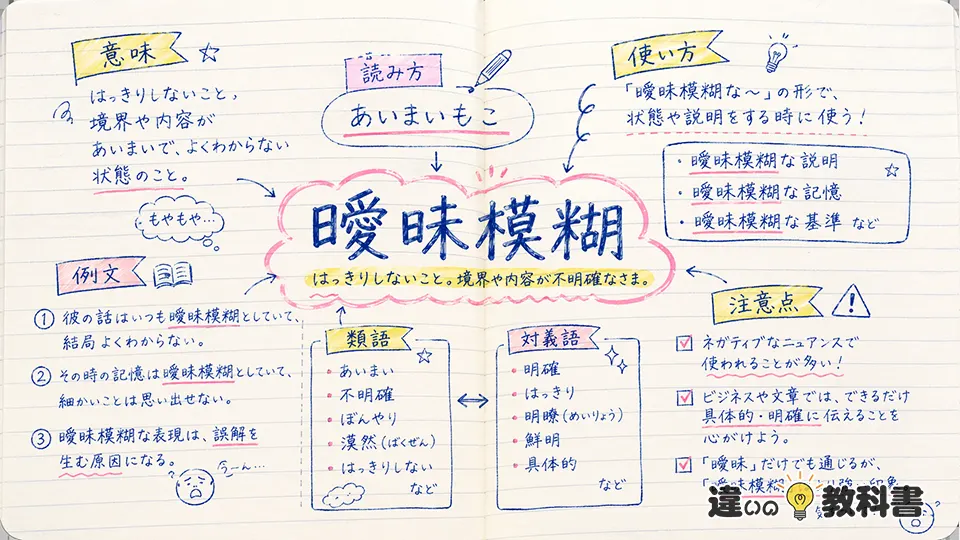 意味
はっきりしないこと、
境界や内容が
あいまいで、よくわからない
状態のこと。
もやもや…
読み方
あいまいもこ
使い方
「曖昧模糊な～」の形で、
状態や説明をする時に使う!
・曖昧模糊な説明
・曖昧模糊な記憶
・曖昧模糊な基準 など
曖昧模糊
はっきりしないこと。境界や内容が不明確なさま。
例文
① 彼の話はいつも曖昧模糊としていて、
結局よくわからない。
② その時の記憶は曖昧模糊としていて、
細かいことは思い出せない。
③ 曖昧模糊な表現は、誤解を
生む原因になる。
うーん…
類語
・あいまい
・不明確
・ぼんやり
・漠然(ばくぜん)
・はっきりしない
など
対義語
・明確
・はっきり
・明瞭(めいりょう)
・鮮明
・具体的
など
注意点
ネガティブなニュアンスで
使われることが多い!
ビジネスや文章では、できるだけ
具体的・明確に伝えることを
心がけよう。
「曖昧」だけでも通じるが、
「曖昧模糊
違いの教科書